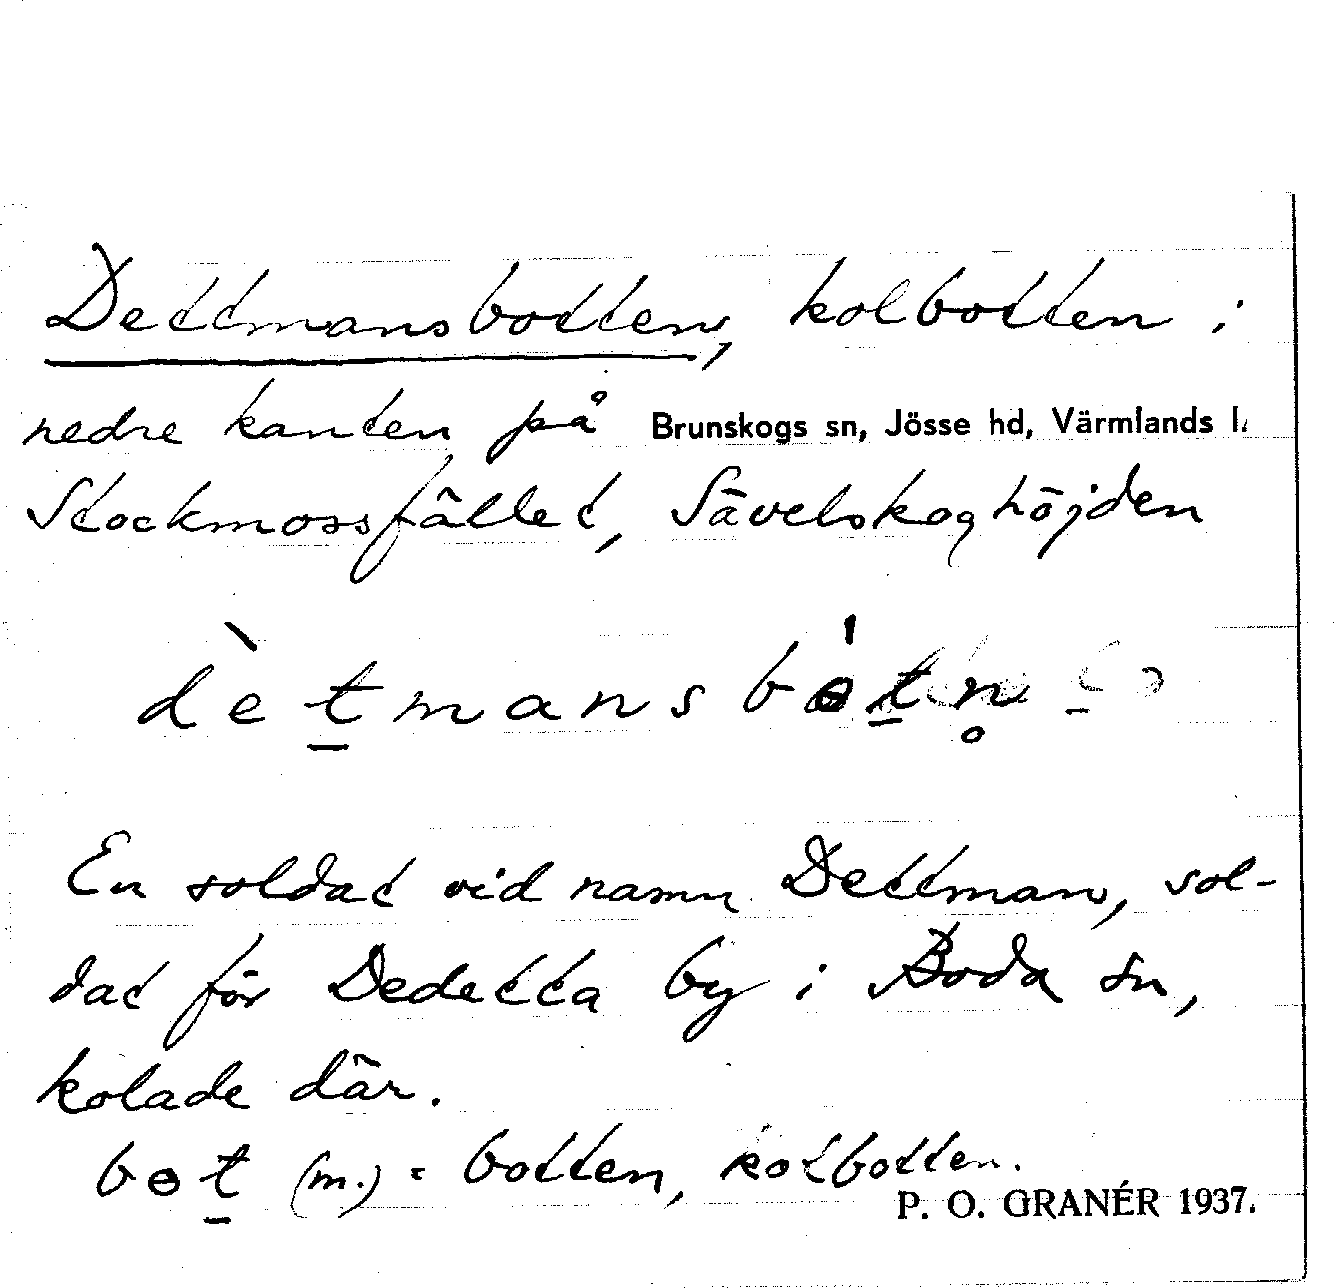 Dettmansbotten, kolbotten i
nedre kanten på Brunskogs sn, Jösse hd, Värmlands l.
Stockmossfället, Sävelskoghöjden
dètmansbɵtn̥
En soldat vid namn Dettman, sol-
dat för Dedetta by i Boda sn,
kolade där.
bɵt (m.) = botten, kolbotten.
P. O. GRANÉR 1937.